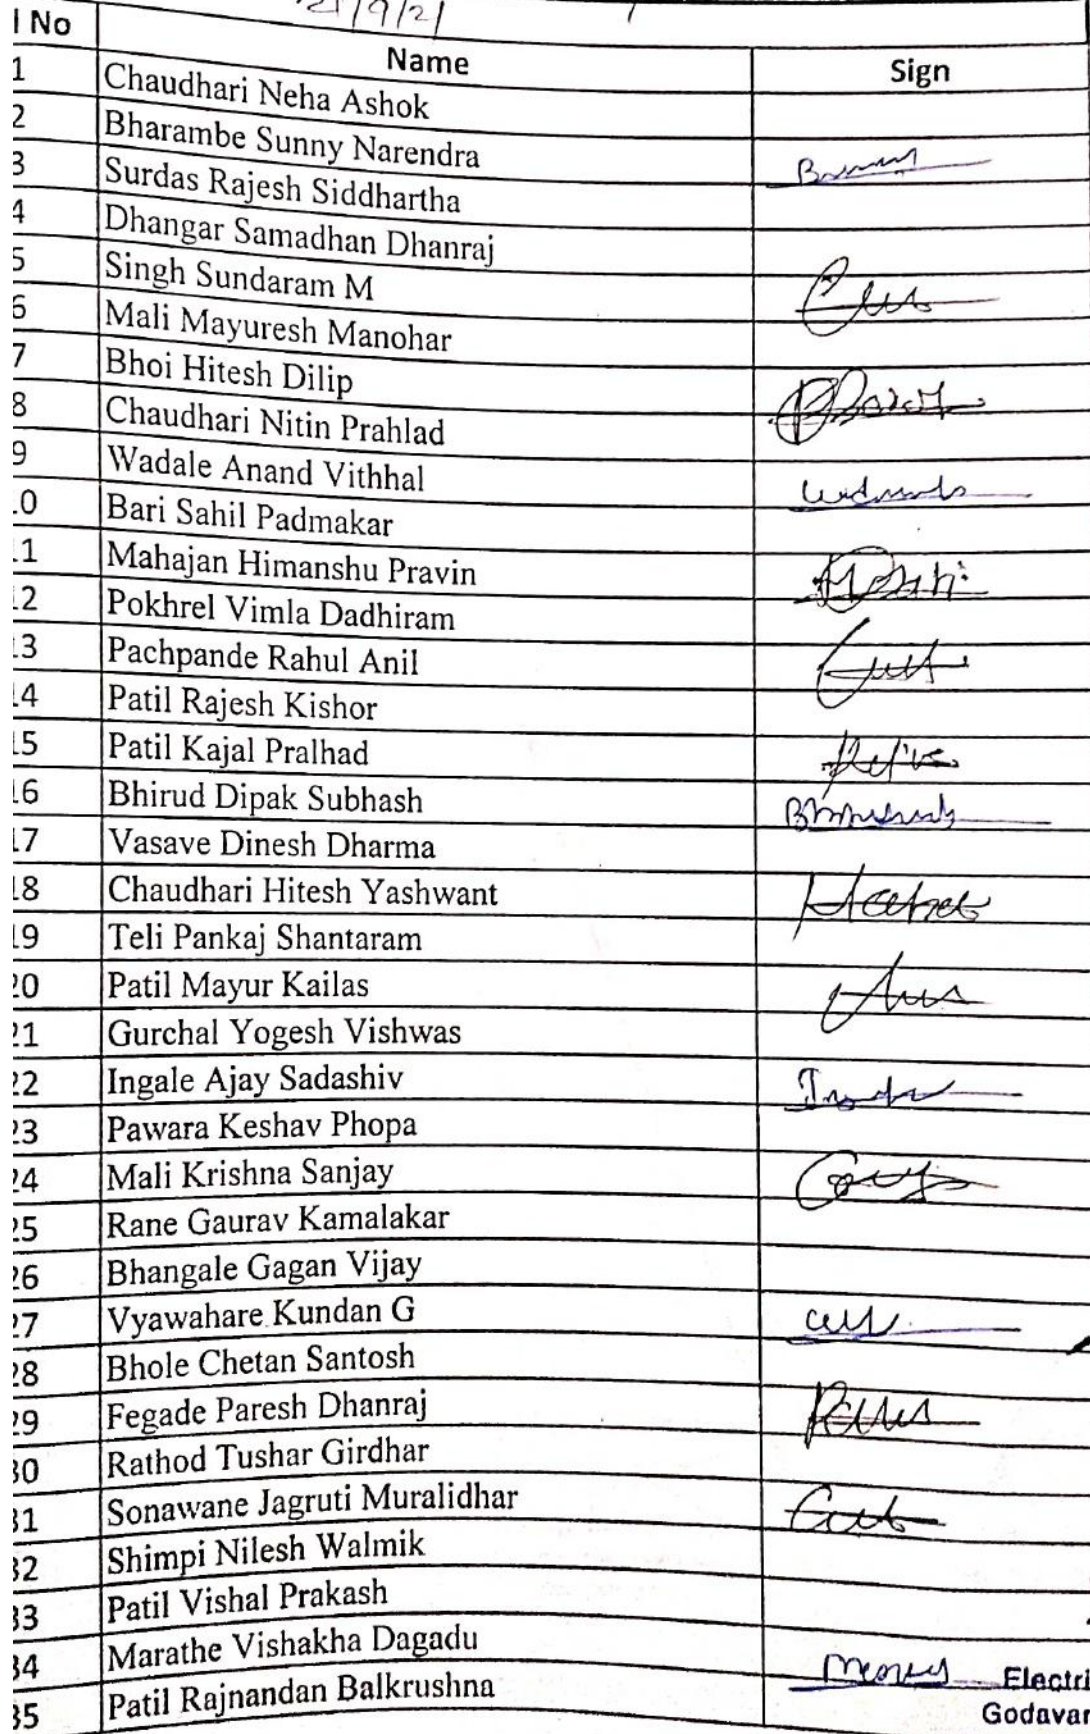 21/9/21
l No Name Sign
1 Chaudhari Neha Ashok
2 Bharambe Sunny Narendra
3 Surdas Rajesh Siddhartha
4 Dhangar Samadhan Dhanraj
5 Singh Sundaram M
6 Mali Mayuresh Manohar
7 Bhoi Hitesh Dilip
8 Chaudhari Nitin Prahlad
9 Wadale Anand Vithhal
.0 Bari Sahil Padmakar
.1 Mahajan Himanshu Pravin
.2 Pokhrel Vimla Dadhiram
.3 Pachpande Rahul Anil
.4 Patil Rajesh Kishor
.5 Patil Kajal Pralhad
.6 Bhirud Dipak Subhash
.7 Vasave Dinesh Dharma
.8 Chaudhari Hitesh Yashwant
.9 Teli Pankaj Shantaram
20 Patil Mayur Kailas
21 Gurchal Yogesh Vishwas
22 Ingale Ajay Sadashiv
23 Pawara Keshav Phopa
24 Mali Krishna Sanjay
25 Rane Gaurav Kamalakar
26 Bhangale Gagan Vijay
27 Vyawahare Kundan G
28 Bhole Chetan Santosh
29 Fegade Paresh Dhanraj
30 Rathod Tushar Girdhar
31 Sonawane Jagruti Muralidhar
32 Shimpi Nilesh Walmik
33 Patil Vishal Prakash
34 Marathe Vishakha Dagadu Electri
35 Patil Rajnandan Balkrushna Godavar